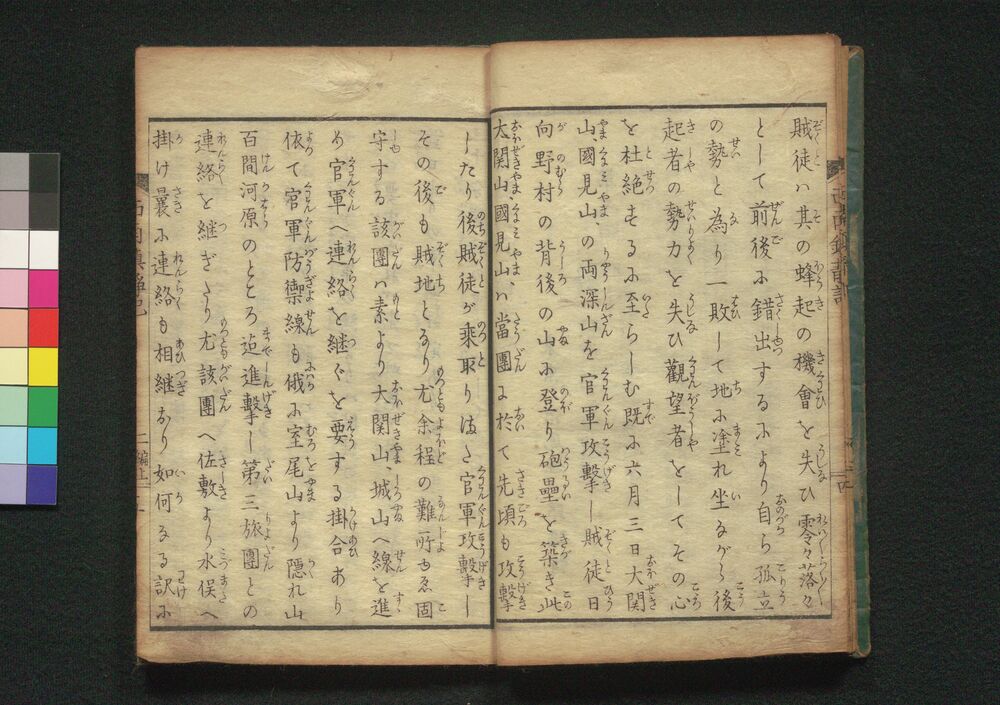 賊徒ハ其の蜂起の機會を失ひ零々落々
として前後に錯出するにより自ら孤立
の勢と為り一敗して地に塗れ坐ながら後
起者の勢力を失ひ觀望者をしてその心
を杜絶するに至らしむ既に六月三日大関
山國見山、の両深山を官軍攻擊し賊徒日
向野村の背後の山に登り砲壘を築き此
大関山、國見山、ハ當團に於て先頃も攻擊
したり後賊徒が乗取りはた官軍攻擊し
その後も賊地となり尤余程の難所ゆゑ固
守する該團ハ素より大関山、城山へ線を進
め官軍へ連絡を継ぐを要する掛合あり
依て官軍防禦線も俄に室尾山より隠れ山
百間河原のところ迄進擊し第三旅團との
連絡を継ぎたり尤該團へ佐敷より水俣へ
掛け曩に連絡も相継なり如何なる訳に
二編上